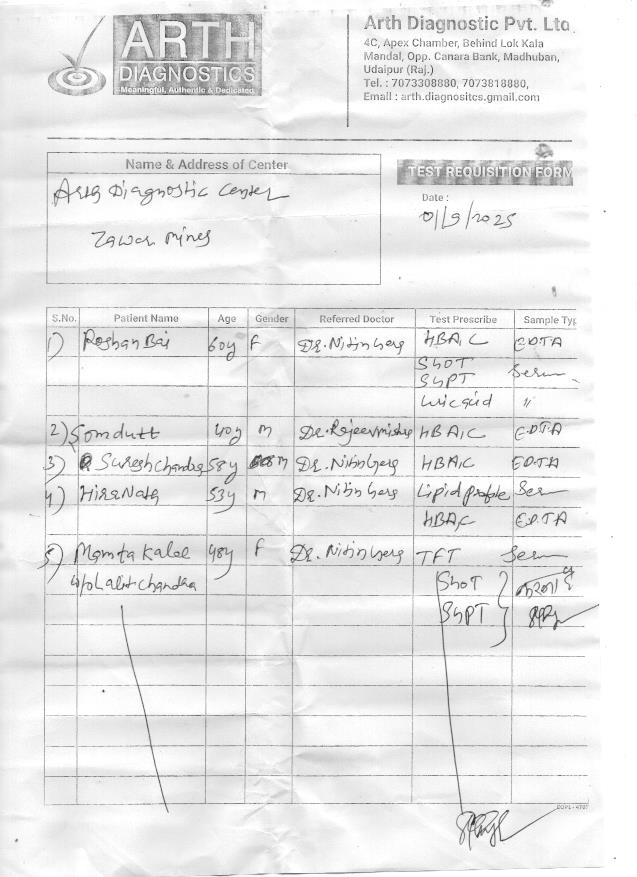 ARTH
DIAGNOSTICS
Meaningful, Authentic & Dedicated
Arth Diagnostic Pvt. Ltd
4C, Apex Chamber, Behind Lok Kala
Mandal, Opp. Canara Bank, Madhuban,
Udaipur (Raj.)
Tel. : 7073308880, 7073818880,
Email : arth.diagnositcs.gmail.com
Name & Address of Center
Arth Diagnostic Center
Zawar Mines
TEST REQUISITION FORM
Date :
01/9/2025
S.No. Patient Name Age Gender Referred Doctor Test Prescribe Sample Typ
1) Roshan Bai 60y F Dr. Nitin Garg HBAIC EDTA
SGOT Serum
SGPT
Uric acid "
2) Somdutt 40y M Dr. Rajeev mishra HBAIC EDTA
3) Suresh Chandra 58y M Dr. Nitin Garg HBAIC EDTA
4) Hira Nath 53y M Dr. Nitin Garg Lipid profile Ser
HBAC EDTA
5) Mamta Kalal 48y F Dr. Nitin Garg TFT Serum
w/o Lalit Chandra SGOT
SGPT